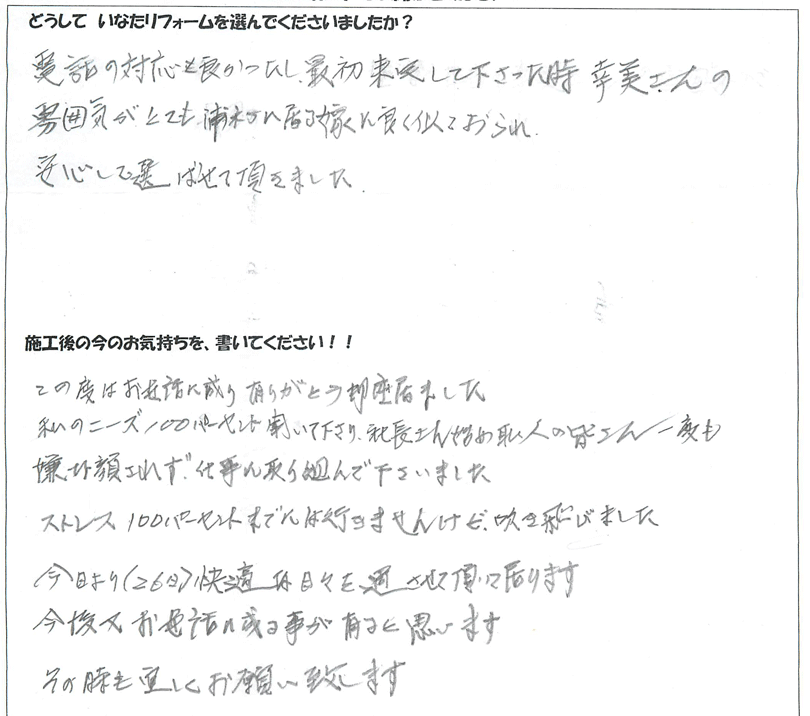 どうして いなたリフォームを選んでくださいましたか？
電話の対応も良かったし、最初来宅して下さった時 幸美さんの
雰囲気がとても 浦和に居る嫁に良く似ておられ、
安心して選ばせて頂きました。
施工後の今のお気持ちを、書いてください！！
この度はお世話に成り 有りがとう御座居ました
私のニーズ100パーセント聞いて下さり、社長さん始め職人の皆さん一度も
嫌な顔されず、仕事に取り組んで下さいました
ストレス100パーセントまでには行きませんけど、吹き飛びました
今日より(26日)快適な日々を過させて頂いて居ります
今後又お世話に成る事が有ると思います
その時も宜しくお願い致します